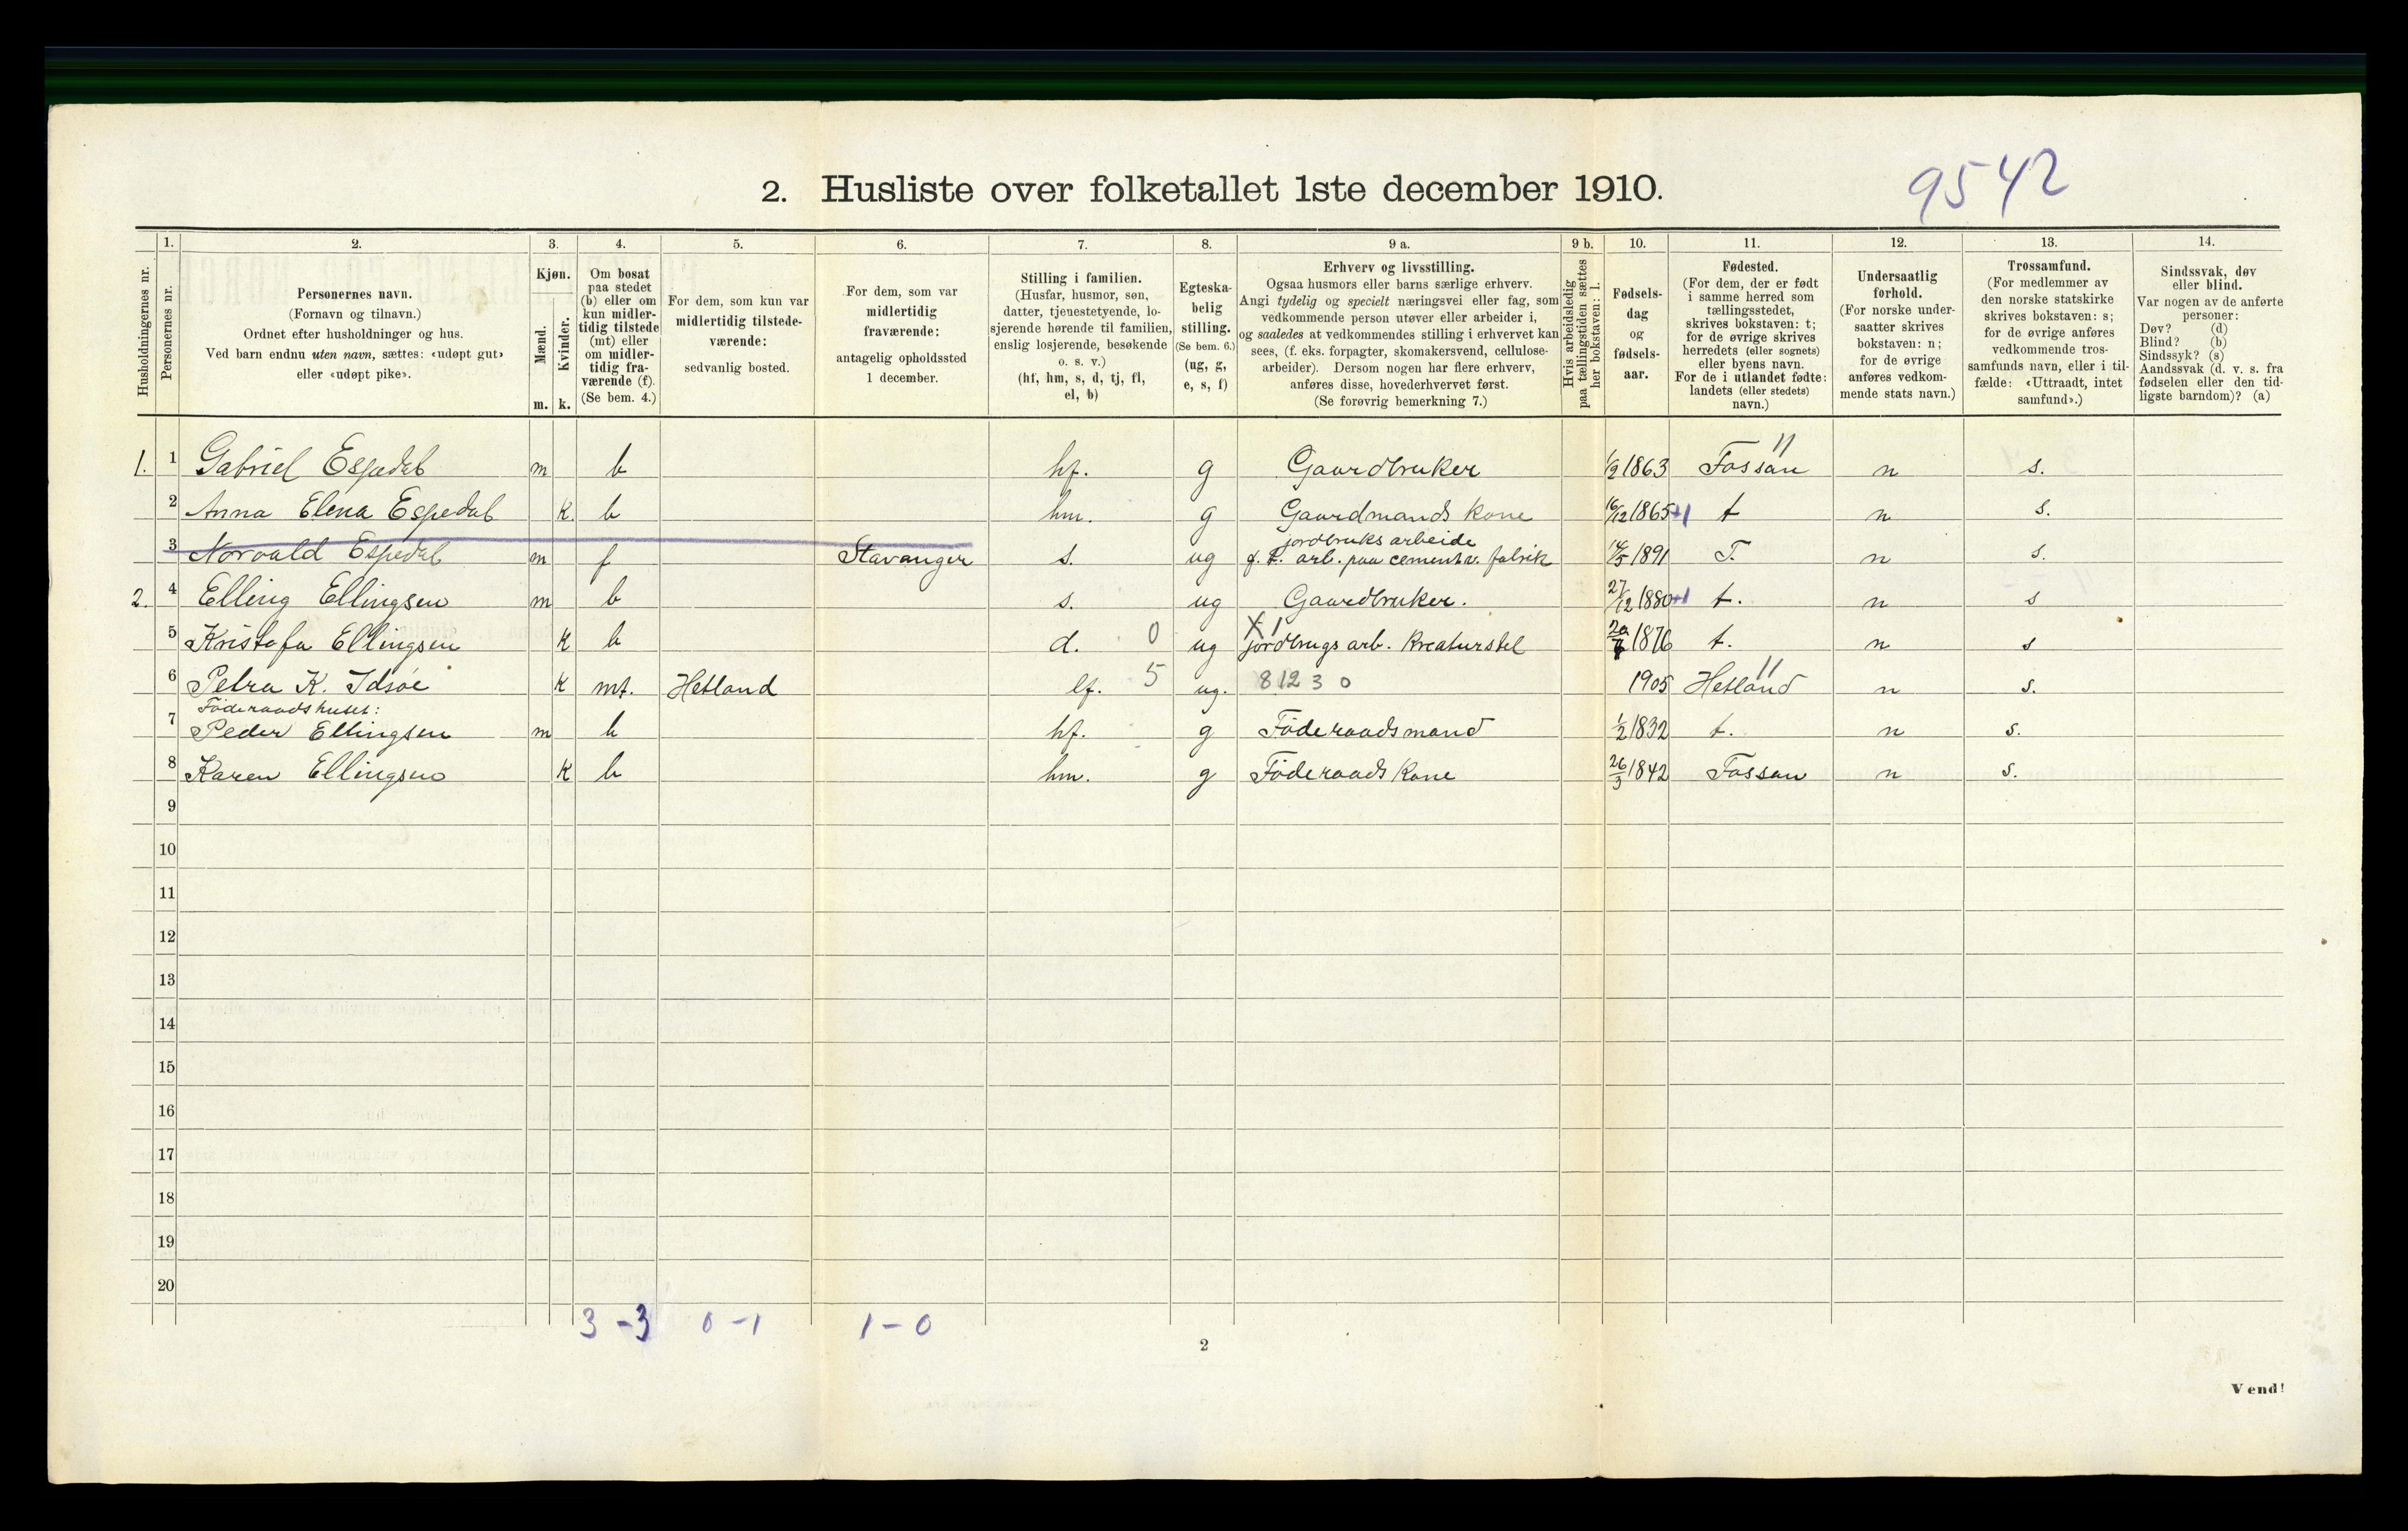 9542
2. Husliste over folketallet 1ste december 1910.
Husholdningernes nr.
1.
Personernes nr.
2.
Personernes navn.
(Fornavn og tilnavn.)
Ordnet efter husholdninger og hus.
Ved barn endnu uten navn, sættes: «udøpt gut»
eller «udøpt pike».
3.
Kjøn.
Mænd.
Kvinder.
m. k.
4.
Om bosat
paa stedet
(b) eller om
kun midler-
tidig tilstede
(mt) eller
om midler-
tidig fra-
værende (f).
(Se bem. 4.)
5.
For dem, som kun var
midlertidig tilstede-
værende:
sedvanlig bosted.
6.
For dem, som var
midlertidig
fraværende:
antagelig opholdssted
1 december.
7.
Stilling i familien.
(Husfar, husmor, søn,
datter, tjenestetyende, lo-
sjerende hørende til familien,
enslig losjerende, besøkende
o. s. v.)
(hf, hm, s, d, tj, fl,
el, b)
8.
Egteska-
belig
stilling.
(Se bem. 6.)
(ug, g,
e, s, f)
9 a.
Erhverv og livsstilling.
Ogsaa husmors eller barns særlige erhverv.
Angi tydelig og specielt næringsvei eller fag, som
vedkommende person utøver eller arbeider i,
og saaledes at vedkommendes stilling i erhvervet kan
sees, (f. eks. forpagter, skomakersvend, cellulose-
arbeider). Dersom nogen har flere erhverv,
anføres disse, hovederhvervet først.
(Se forøvrig bemerkning 7.)
9 b.
Hvis arbeidsledig
paa tællingstiden sættes
her bokstaven: l.
10.
Fødsels-
dag
og
fødsels-
aar.
11.
Fødested.
(For dem, der er født
i samme herred som
tællingsstedet,
skrives bokstaven: t;
for de øvrige skrives
herredets (eller sognets)
eller byens navn.
For de i utlandet fødte:
landets (eller stedets)
navn.)
12.
Undersaatlig
forhold.
(For norske under-
saatter skrives
bokstaven: n;
for de øvrige
anføres vedkom-
mende stats navn.)
13.
Trossamfund.
(For medlemmer av
den norske statskirke
skrives bokstaven: s;
for de øvrige anføres
vedkommende tros-
samfunds navn, eller i til-
fælde: «Uttraadt, intet
samfund».)
14.
Sindssvak, døv
eller blind.
Var nogen av de anførte
personer:
Døv? (d)
Blind? (b)
Sindssyk? (s)
Aandssvak (d. v. s. fra
fødselen eller den tid-
ligste barndom)? (a)
1. 1 Gabriel Espedal m b hf. g Gaardbruker 1/2 1863 Fossan 11 n s.
2 Anna Elena Espedal k. b hm. g Gaardmands kone 16/12 1865 +1 t n s.
jordbruks arbeide
3 Norvald Espedal m f Stavanger s. ug f. t. arb. paa cementv. fabrik 14/5 1891 T. n s.
2. 4 Elling Ellingsen m b s. ug Gaardbruker. 27/12 1880 +1 t. n s
5 Kristofa Ellingsen k b d. 0 ug X 1 jordbrugs arb. Kreaturstel 1876 t. n s
6 Petra K. Idsøe k mt. Hetland lf. 5 ug. 8 12 3 0 1905 Hetland 11 n s.
Föderaadshuset:
7 Peder Ellingsen m b hf. g Föderaadsmand 1/2 1832 t. n s.
8 Karen Ellingsen k b hm. g Föderaads kone 26/3 1842 Fossan n s.
9
10
11
12
13
14
15
16
17
18
19
20
3 - 3 0 - 1 1 - 0
2
Vend!